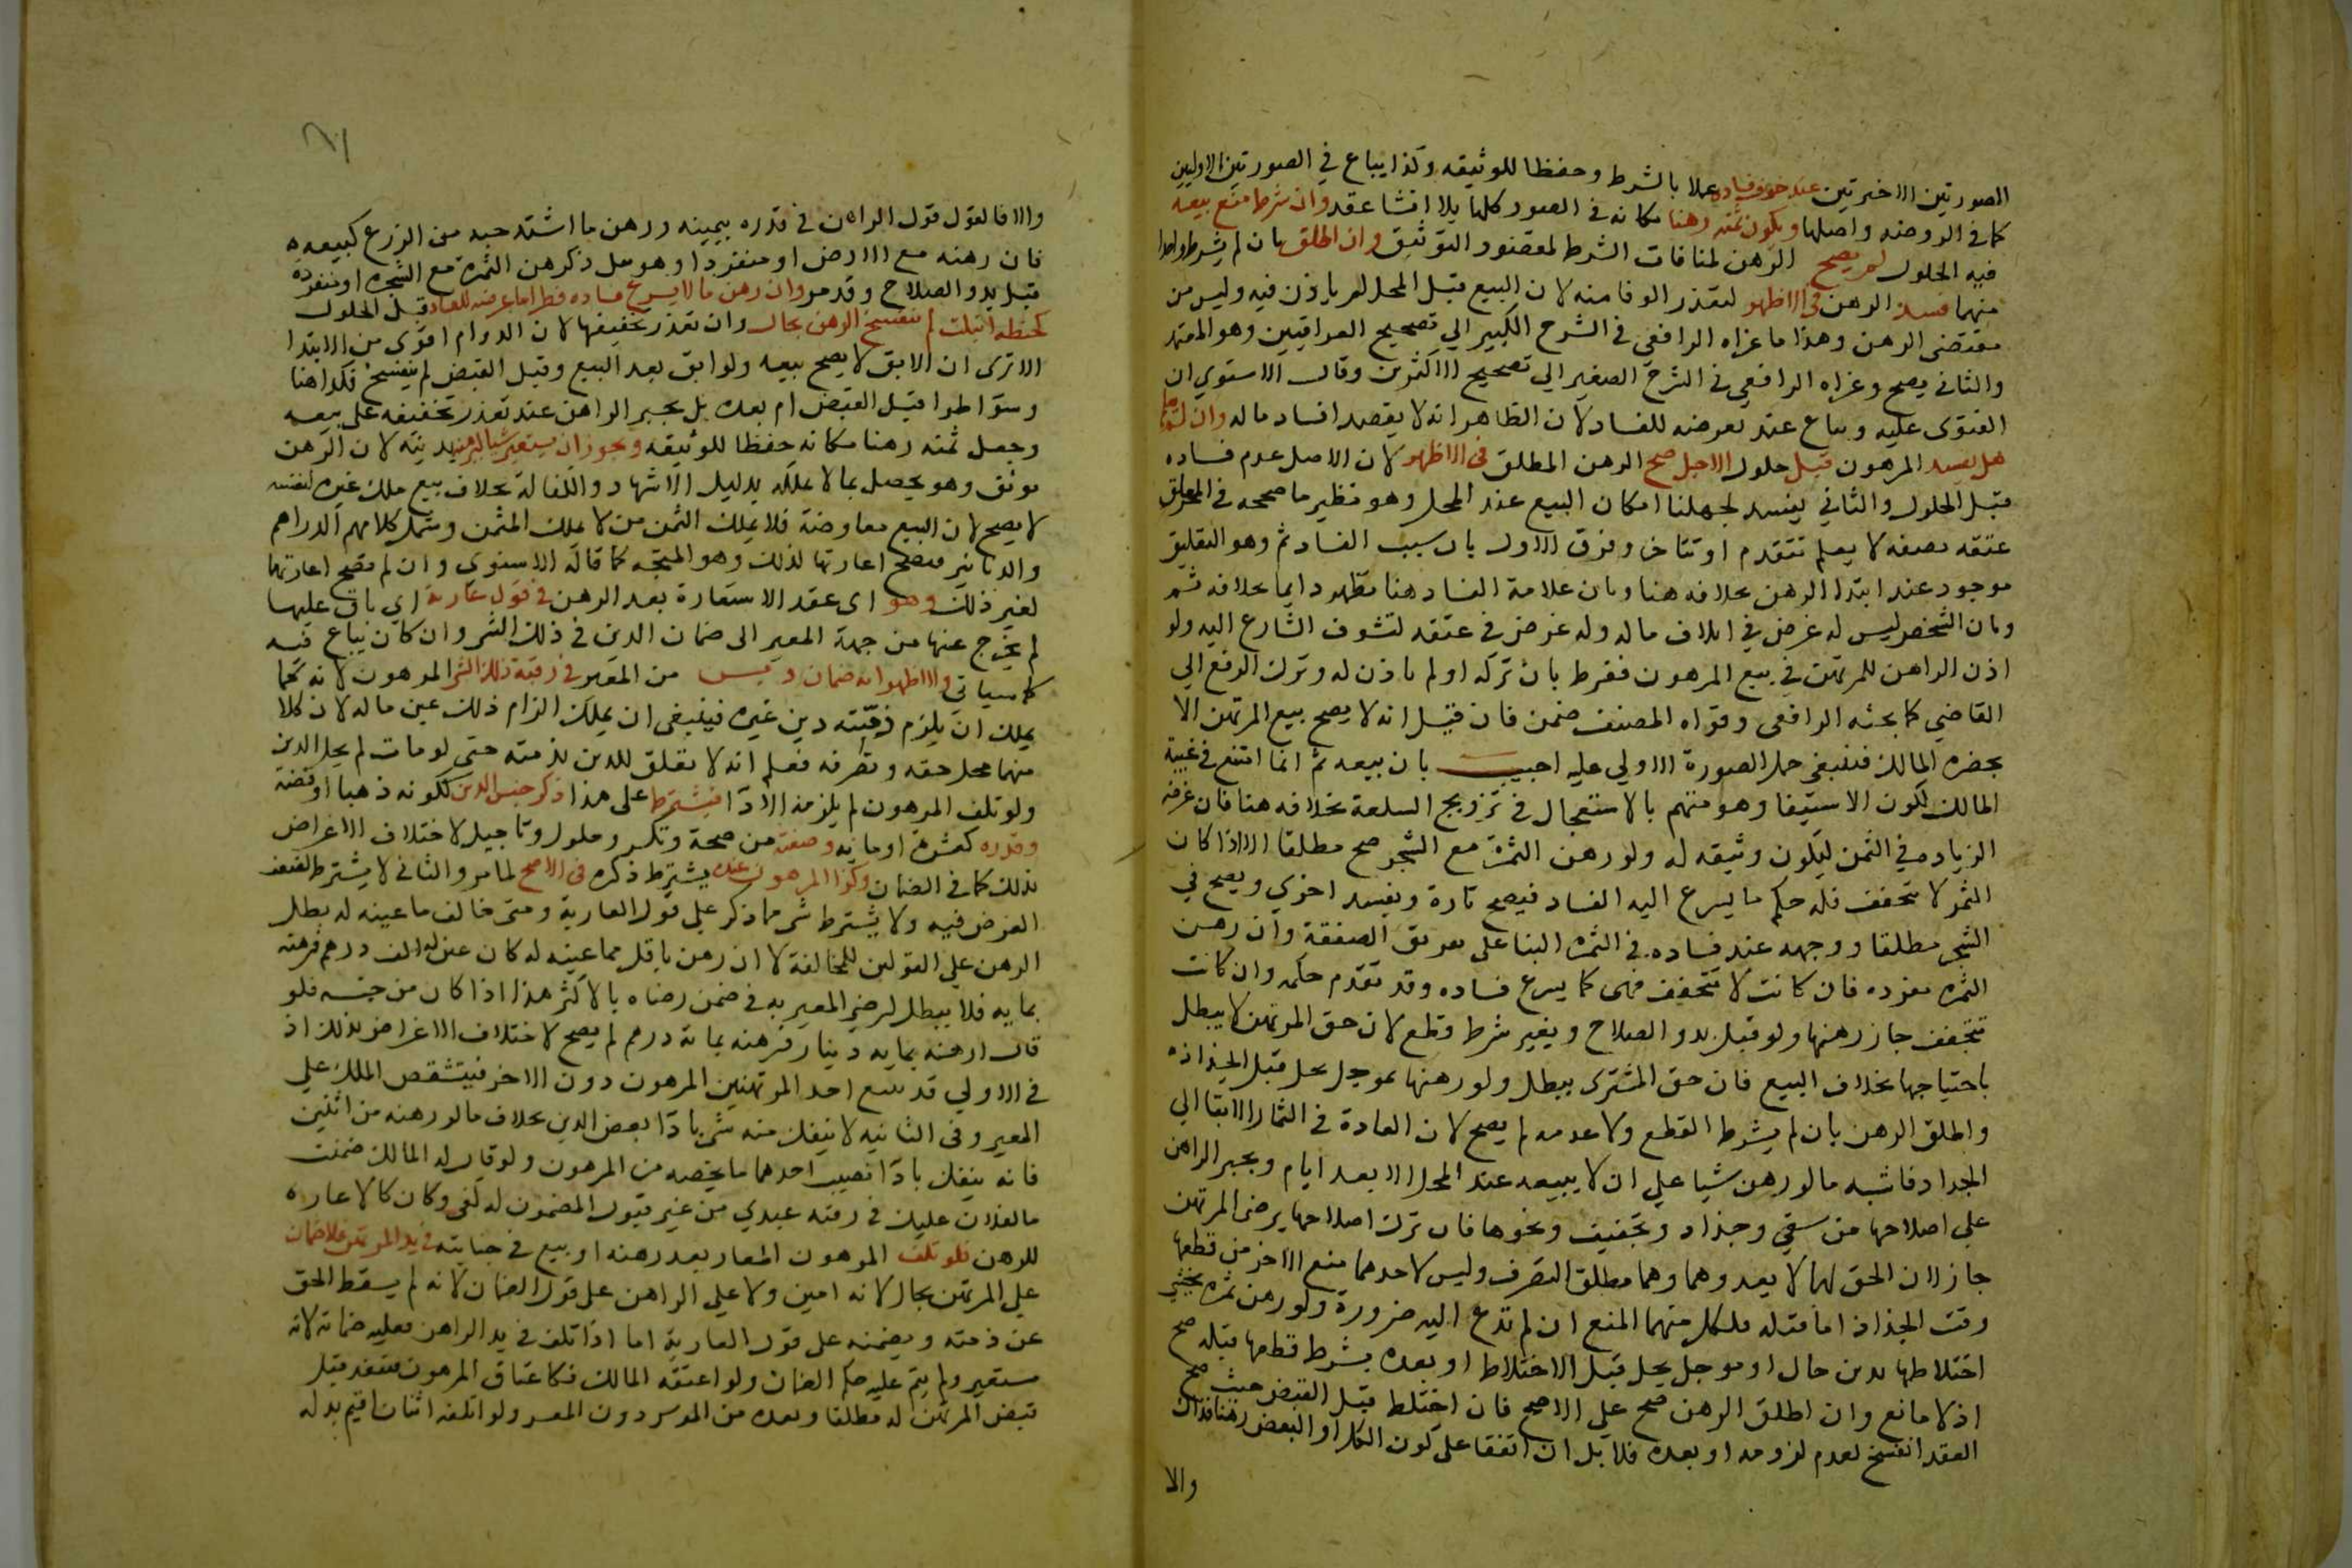 الصورتين الاخيرتين عند خوف فساده عملا بالشرط وحفظا للوثيقه وكذا يباع في الصورتين الاوليين
كما في الروضه واصلها ويكون ثمنه رهنا مكانه في الصور كلها بلا انشا عقد وان شرط منع بيعه
فيه الحلول لم يصح الرهن لمنافات الشرط لمقصود التوثيق وان اطلق بان لم يشرط واحدا
منهما فسد الرهن في الاظهر لتعذر الوفا منه لان البيع قبل المحل لم ياذن فيه وليس من
مقتضى الرهن وهذا ما عزاه الرافعي في الشرح الكبير الي تصحيح العراقيين وهو المعتمد
والثاني يصح وعزاه الرافعي في الشرح الصغير الي تصحيح الاكثرين وقال الاسنوي ان
الفتوى عليه ويباع عند تعرضه للفساد لان الظاهر انه لا يقصد افساد ماله وان لم يعلم
هل يفسد المرهون قبل حلول الاجل صح الرهن المطلق في الاظهر لان الاصل عدم فساده
قبل الحلول والثاني يفسد لجهلنا امكان البيع عند المحل وهو نظير ما صححه في المعلق
عتقه بصفه لا يعلم تتقدم او تتاخر وفرق الاول بان سبب الفساد ثم وهو التعليق
موجود عند ابتدا الرهن بخلافه هنا وبان علامة الفساد هنا تظهر دايما بخلافه ثم
وبان الشخص ليس له غرض في اتلاف ماله وله غرض في عتقه لتشوف الشارع اليه ولو
اذن الراهن للمرتهن في بيع المرهون ففرط بان تركه او لم ياذن له وترك الرفع الي
القاضي كما بحثه الرافعي وقواه المصنف ضمن فان قيل انه لا يصح بيع المرتهن الا
بحضره المالك فينبغي حمل الصورة الاولي عليه اجيب بان بيعه ثم انما امتنع في غيبة
المالك لكون الاستيفا وهو متهم بالاستعجال في ترويج السلعة بخلافه هنا فان غرضه
الزياده في الثمن ليكون وثيقه له ولو رهن الثمرة مع الشجر صح مطلقا الا اذا كان
الثمر لا يتجفف فله حكم ما يسرع اليه الفساد فيصح تارة ويفسد اخري ويصح في
الشجر مطلقا ووجهه عند فساده في الثمره البنا على تفريق الصفقة وان رهن
الثمره مفرده فان كانت لا تتجفف فهى كما يسرع فساده وقد تقدم حكمه وان كانت
تتجفف جاز رهنها ولو قبل بدو الصلاح وبغير شرط قطع لان حق المرتهن لا يبطل
باجتياحها بخلاف البيع فان حق المشترى يبطل ولو رهنها بموجل يحل قبل الجذاذ
واطلق الرهن بان لم يشرط القطع ولا عدمه لم يصح لان العادة في الثمار الابقا الي
الجداد فاشبه ما لو رهن شيا علي ان لا يبيعه عند المحل الا بعد ايام ويجبر الراهن
علي اصلاحها من سقي وجذاد وتجفيف ونحوها فان ترك اصلاحها برضى المرتهن
جاز لان الحق لهما لا يعدوهما وهما مطلقا التصرف وليس لاحدهما منع الاخر من قطعها
وقت الجذاذ اما قبله فلكل منهما المنع ان لم تدع اليه ضرورة ولو رهن ثمره يخشي
اختلاطها بدين حال او موجل يحل قبل الاختلاط او بعده بشرط قطعها قبله صح
اذ لا مانع وان اطلق الرهن صح علي الاصح فان اختلط قبل القبض حيث صح
العقد انفسخ لعدم لزومه او بعده فلا بل ان اتفقا على كون الكل او البعض رهنا فذاك
والا
والا فالقول قول الراهن في قدره بيمينه ورهن ما اشتد حبه من الزرع كبيعه
فان رهنه مع الارض او منفردا وهو بقل ذكر رهن الثمرة مع الشجره او منفرده
قبل بدو الصلاح وقد مر وان رهن ما لا يسرع فساده فطرا ما عرضه للفساد قبل الحلول
كحنطة ابتلت لم ينفسخ الرهن بحال وان تعذر تجفيفها لان الدوام اقوى من الابتدا
الا ترى ان الابق لا يصح بيعه ولو ابق بعد البيع وقبل القبض لم ينفسخ فكذا هنا
وسوا طرا قبل القبض ام بعده بل يجبر الراهن عند تعذر تجفيفه على بيعه
وجعل ثمنه رهنا مكانه حفظا للوثيقه ويجوز ان يستعير شيا ليرهنه بدينه لان الرهن
توثق وهو يحصل بما لا يملكه بدليل الاشهاد والكفالة بخلاف بيع ملك غيره لنفسه
لا يصح لان البيع معاوضة فلا يملك الثمن من لا يملك المثمن وشمل كلامهم الدراهم
والدنانير فتصح اعارتها لذلك وهو المتجه كما قاله الاسنوي وان لم تصح اعارتها
لغير ذلك وهو اى عقد الاستعارة بعد الرهن في قول عارية اي باق عليها
لم يخرج عنها من جهة المعير الى ضمان الدين في ذلك الشى وان كان يباع فيه
كما سياتي والاظهر انه ضمان دين من المعير في رقبة ذلك الشى المرهون لانه كما
يملك ان يلزم ذمته دين غيره فينبغي ان يملك الزام ذلك عين ماله لان كلا
منهما محل حقه وتصرفه فعلم انه لا تعلق للدين بذمته حتى لو مات لم يحل الدين
ولو تلف المرهون لم يلزمه الادا فيشترط على هذا ذكر جنس الدين ككونه ذهبا او فضة
وقدره كعشرة او مايه وصفته من صحة وتكسر وحلول وتاجيل لاختلاف الاغراض
بذلك كما في الضمان وكذا المرهون عنده يشترط ذكره في الاصح لما مر والثاني لا يشترط لضعف
الغرض فيه ولا يشترط شى مما ذكر على قول العارية ومتى خالف ما عينه له بطل
الرهن علي القولين للمخالفة لا ان رهن باقل مما عينه له كان عين له الف درهم فرهنه
بمايه فلا يبطل لرضى المعير به في ضمن رضاه بالاكثر هذا اذا كان من جنسه فلو
قال ارهنه بمايه دينار فرهنه بماية درهم لم يصح لاختلاف الاغراض بذلك اذ
في الاولي قد يبيع احد المرتهنين المرهون دون الاخر فيتشقص الملك علي
المعير وفي الثانيه لا ينفك منه شى بادا بعض الدين بخلاف ما لو رهنه من اثنين
فانه ينفك بادا نصيب احدهما ما يخصه من المرهون ولو قال له المالك ضمنت
ما لفلان عليك في رقبة عبدي من غير قبول المضمون له كفى وكان كالاعاره
للرهن فلو تلف المرهون المعار بعد رهنه او بيع في جنايته في يد المرتهن فلا ضمان
علي المرتهن بحال لانه امين ولا علي الراهن على قول الضمان لانه لم يسقط الحق
عن ذمته ويضمنه على قول العارية اما اذا تلف في يد الراهن فعليه ضمانه لانه
مستعير ولم يتم عليه حكم الضمان ولو اعتقه المالك فكاعتاق المرهون فينفذ قبل
قبض المرتهن له مطلقا وبعده من الموسر دون المعسر ولو اتلفه انسان اقيم بدله